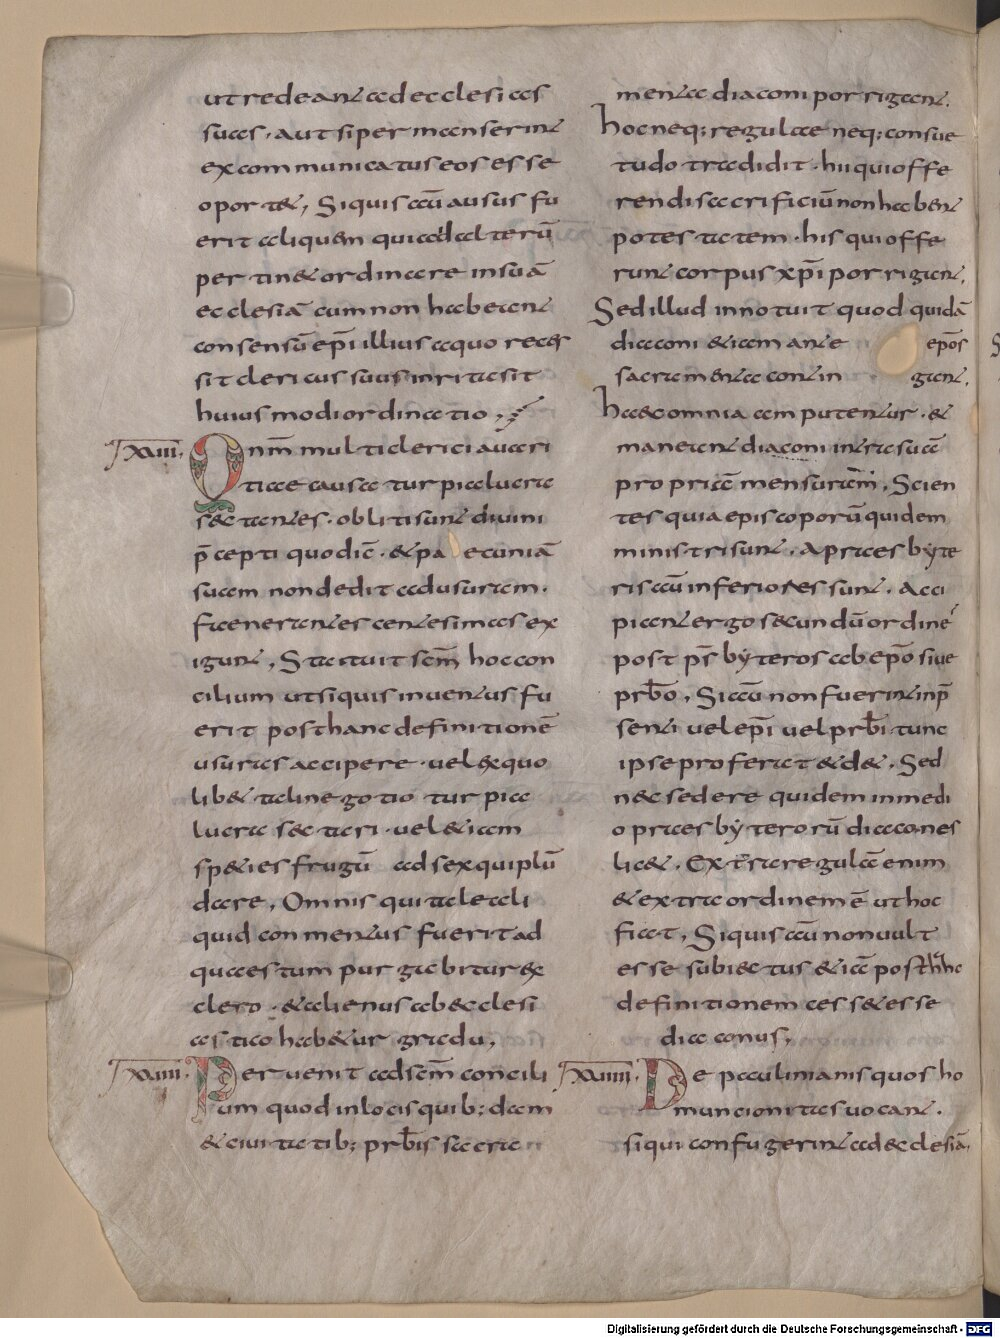 ut redeant ad ecclesias
suas · aut si permanserint
excommunicatus eos esse
oportet, Siquis aũ ausus fu
erit aliquem qui ad alterũ
pertinet ordinare in suã
ecclesiã cum non habeant
consensũ ep̃i illius a quo reces
sit clericus suus inrita sit
huius modi ordinatio,
XVII. Qnm̃ multi clerici avari
tiae causa turpia lucra
sectantes · obliti sunt divini
p̃cepti quo dic̃ · et pa ecuniã
suam non dedit ad usuram ·
faenerantes centesimas ex
igunt, Statuit scm̃ hoc con
cilium ut siquis inventus fu
erit post hanc definitionẽ
usuras accipere · vel ex quo
libet tali negotio turpia
lucra sectari · vel etiam
species frugũ ad sexquiplũ
dare, Omnis qui tale ali
quid conmentus fuerit ad
quaestum purgabitur ex
clero · et alienus ab eclesi
astico habetur gradu,
XVIII. Pervenit ad scm̃ concili
um quod in locis quib; dam
et civitatib; prb̃is sacra
menta diaconi porrigant,
hoc neq; regula neq; consue
tudo tradidit · hii qui offe
rendi sacrificiũ non habent
potestatem · his qui offe
runt corpus xp̃i porrigant,
Sed illud innotuit quod quidã
diaconi etiam ante ep̃os
sacramenta contin gant,
haec omnia amputentur · et
maneant diaconi intra suã
propriã mensuram, Scien
tes quia episcoporũ quidem
ministri sunt, A presbyte
ris aũ inferiores sunt, Acci
piant ergo secundũ ordinẽ
post p̃sbyteros ab ep̃o sive
prb̃o, Si aũ non fuerint inp̃
senti vel ep̃i vel prb̃i tunc
ipse proferat et det, Sed
nec sedere quidem in medi
o presbyterorũ diacones
licet, Extra regulã enim
et extra ordinem ẽ ut hoc
fiat, Siquis aũ non vult
esse subiectus etiã post hãc
definitionem cesset esse
diaconus,
XVIIII. De paulinianis quos ho
muncionitas vocant,
siqui confugerint ad ecclesiã,
Digitalisierung gefördert durch die Deutsche Forschungsgemeinschaft - DFG